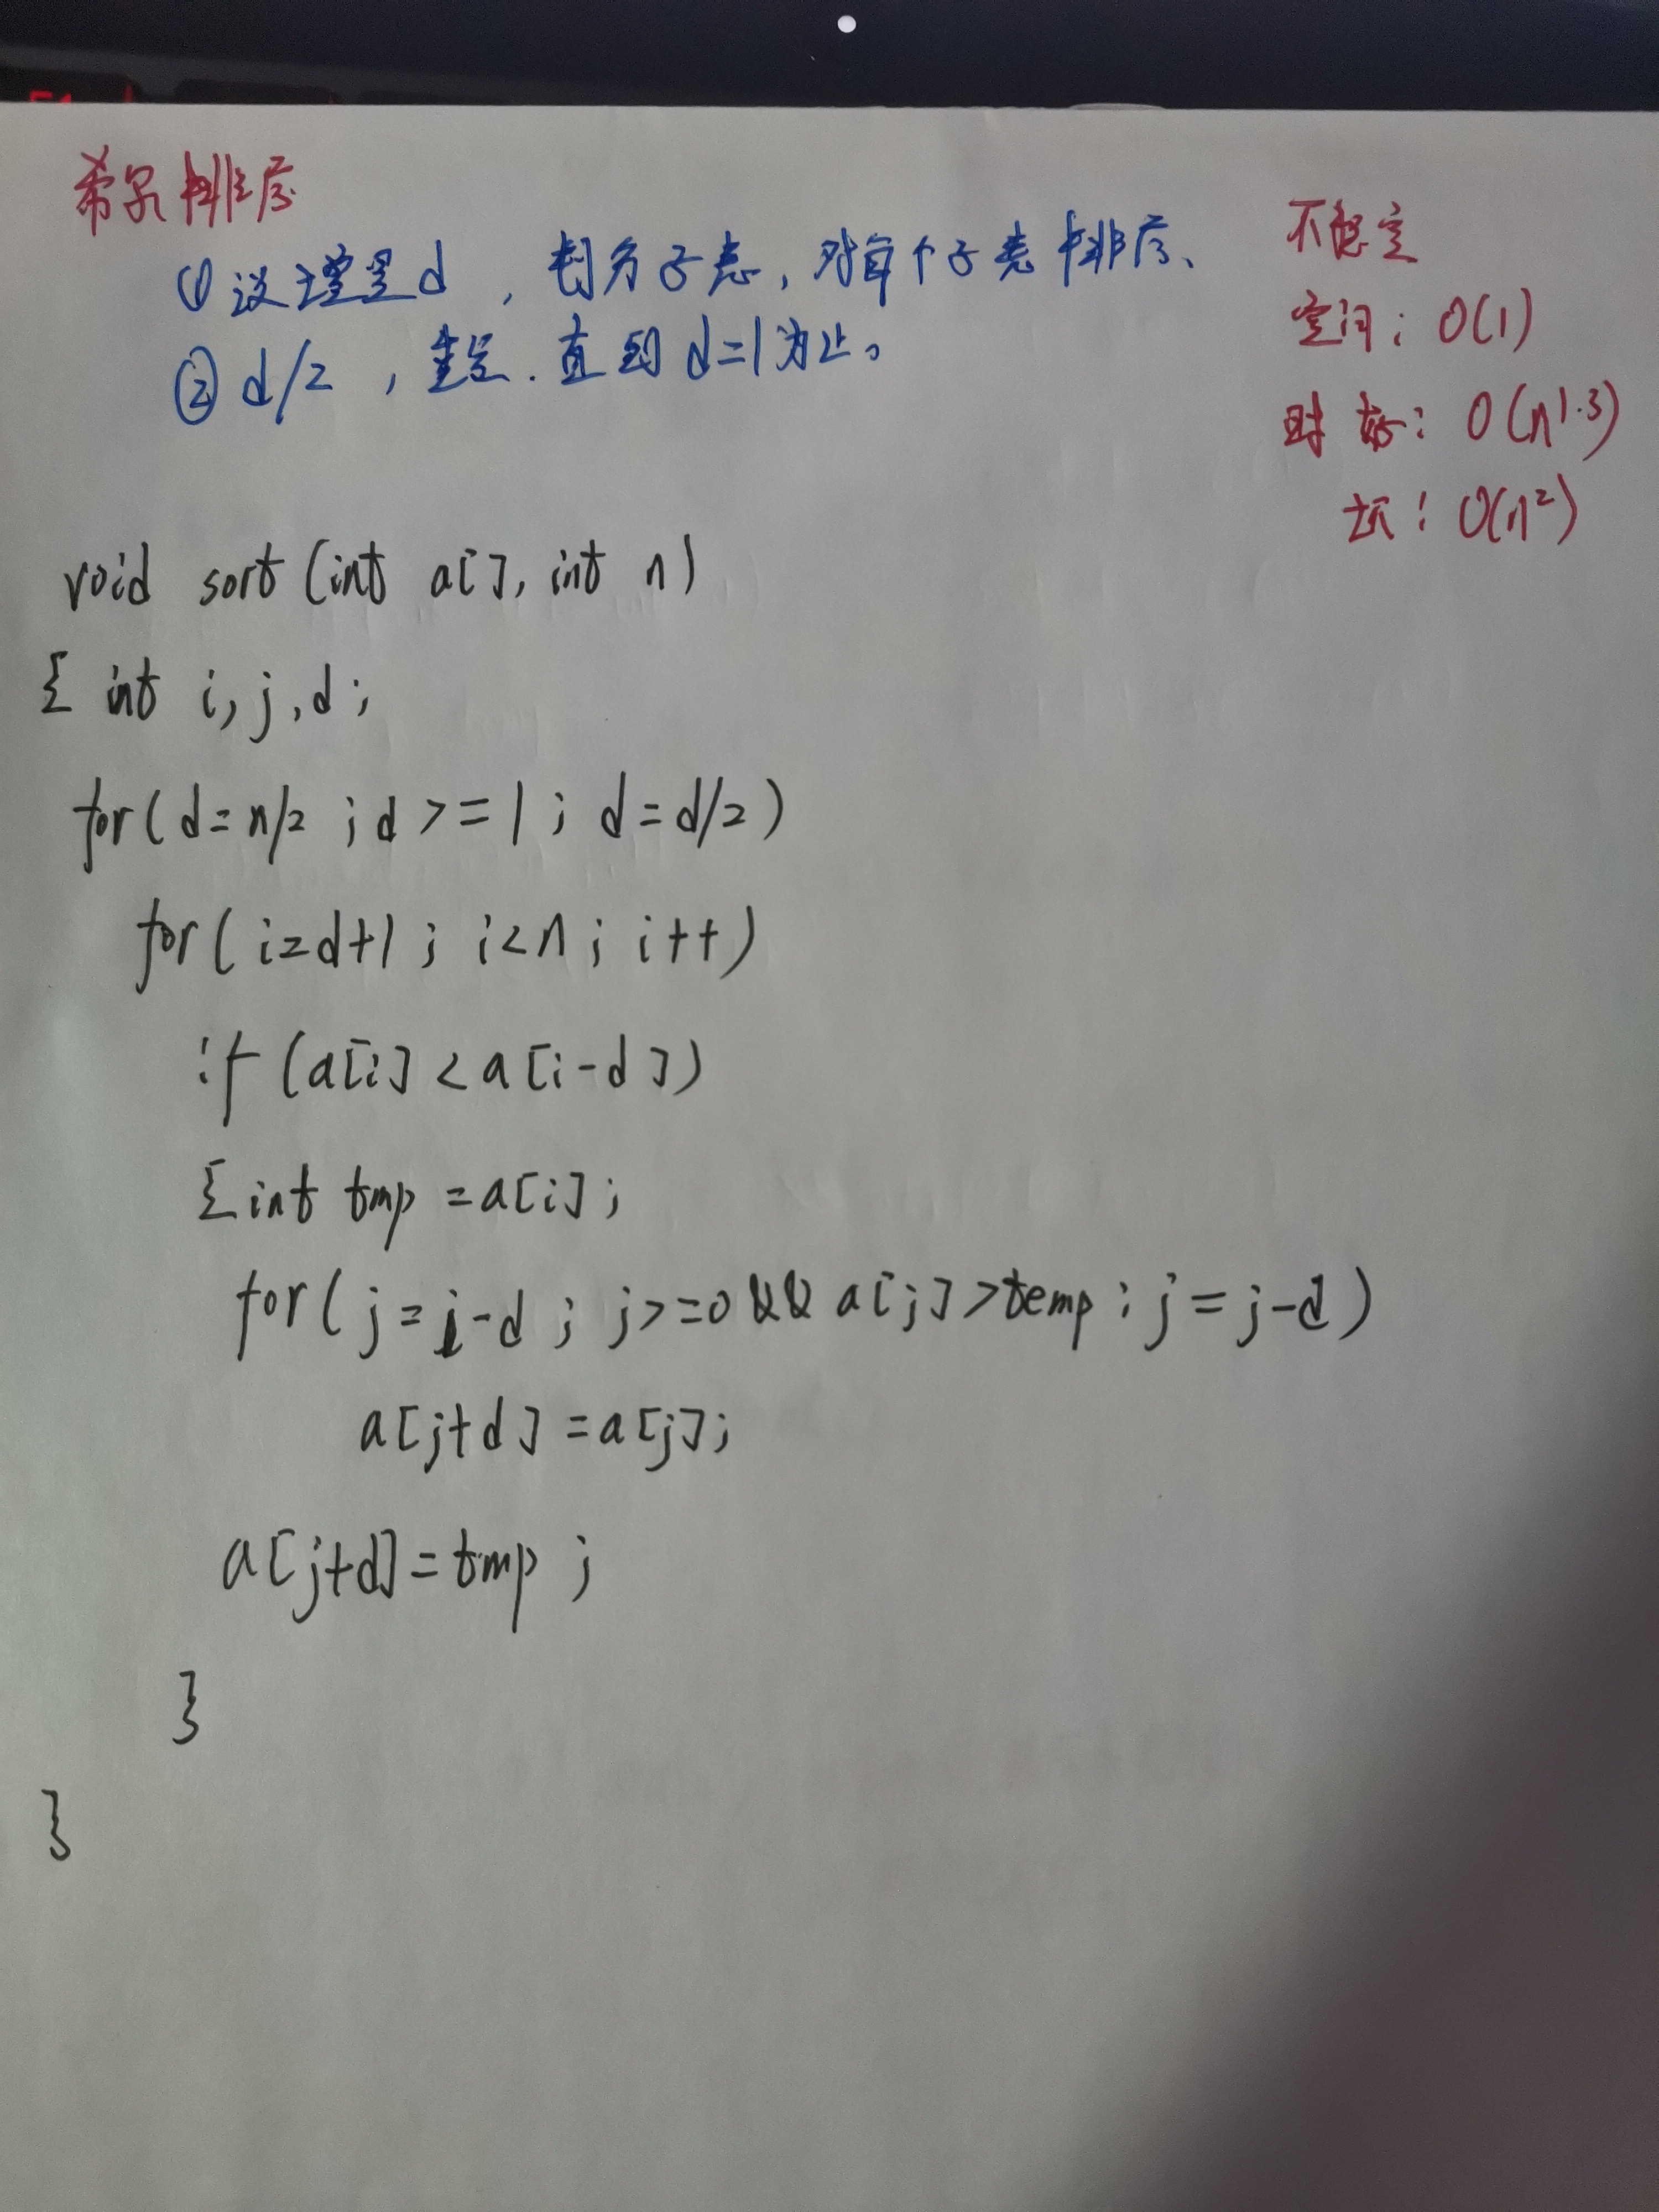 希尔排序
①设增量d，划分子表，对每个子表排序、
②d/2，重定.直到d=1为止。
不稳定
空间：O(1)
时 好：O(n^1.3)
坏：O(n²)
void sort (int a[], int n)
{ int i, j, d;
for( d=n/2 ; d >= 1 ; d=d/2)
for( i=d+1 ; i<n ; i++)
if (a[i] < a[i-d])
{int tmp =a[i];
for( j=i-d ; j>=0 && a[j]>temp ; j=j-d)
a[j+d] =a[j];
a[j+d]=tmp ;
}
}